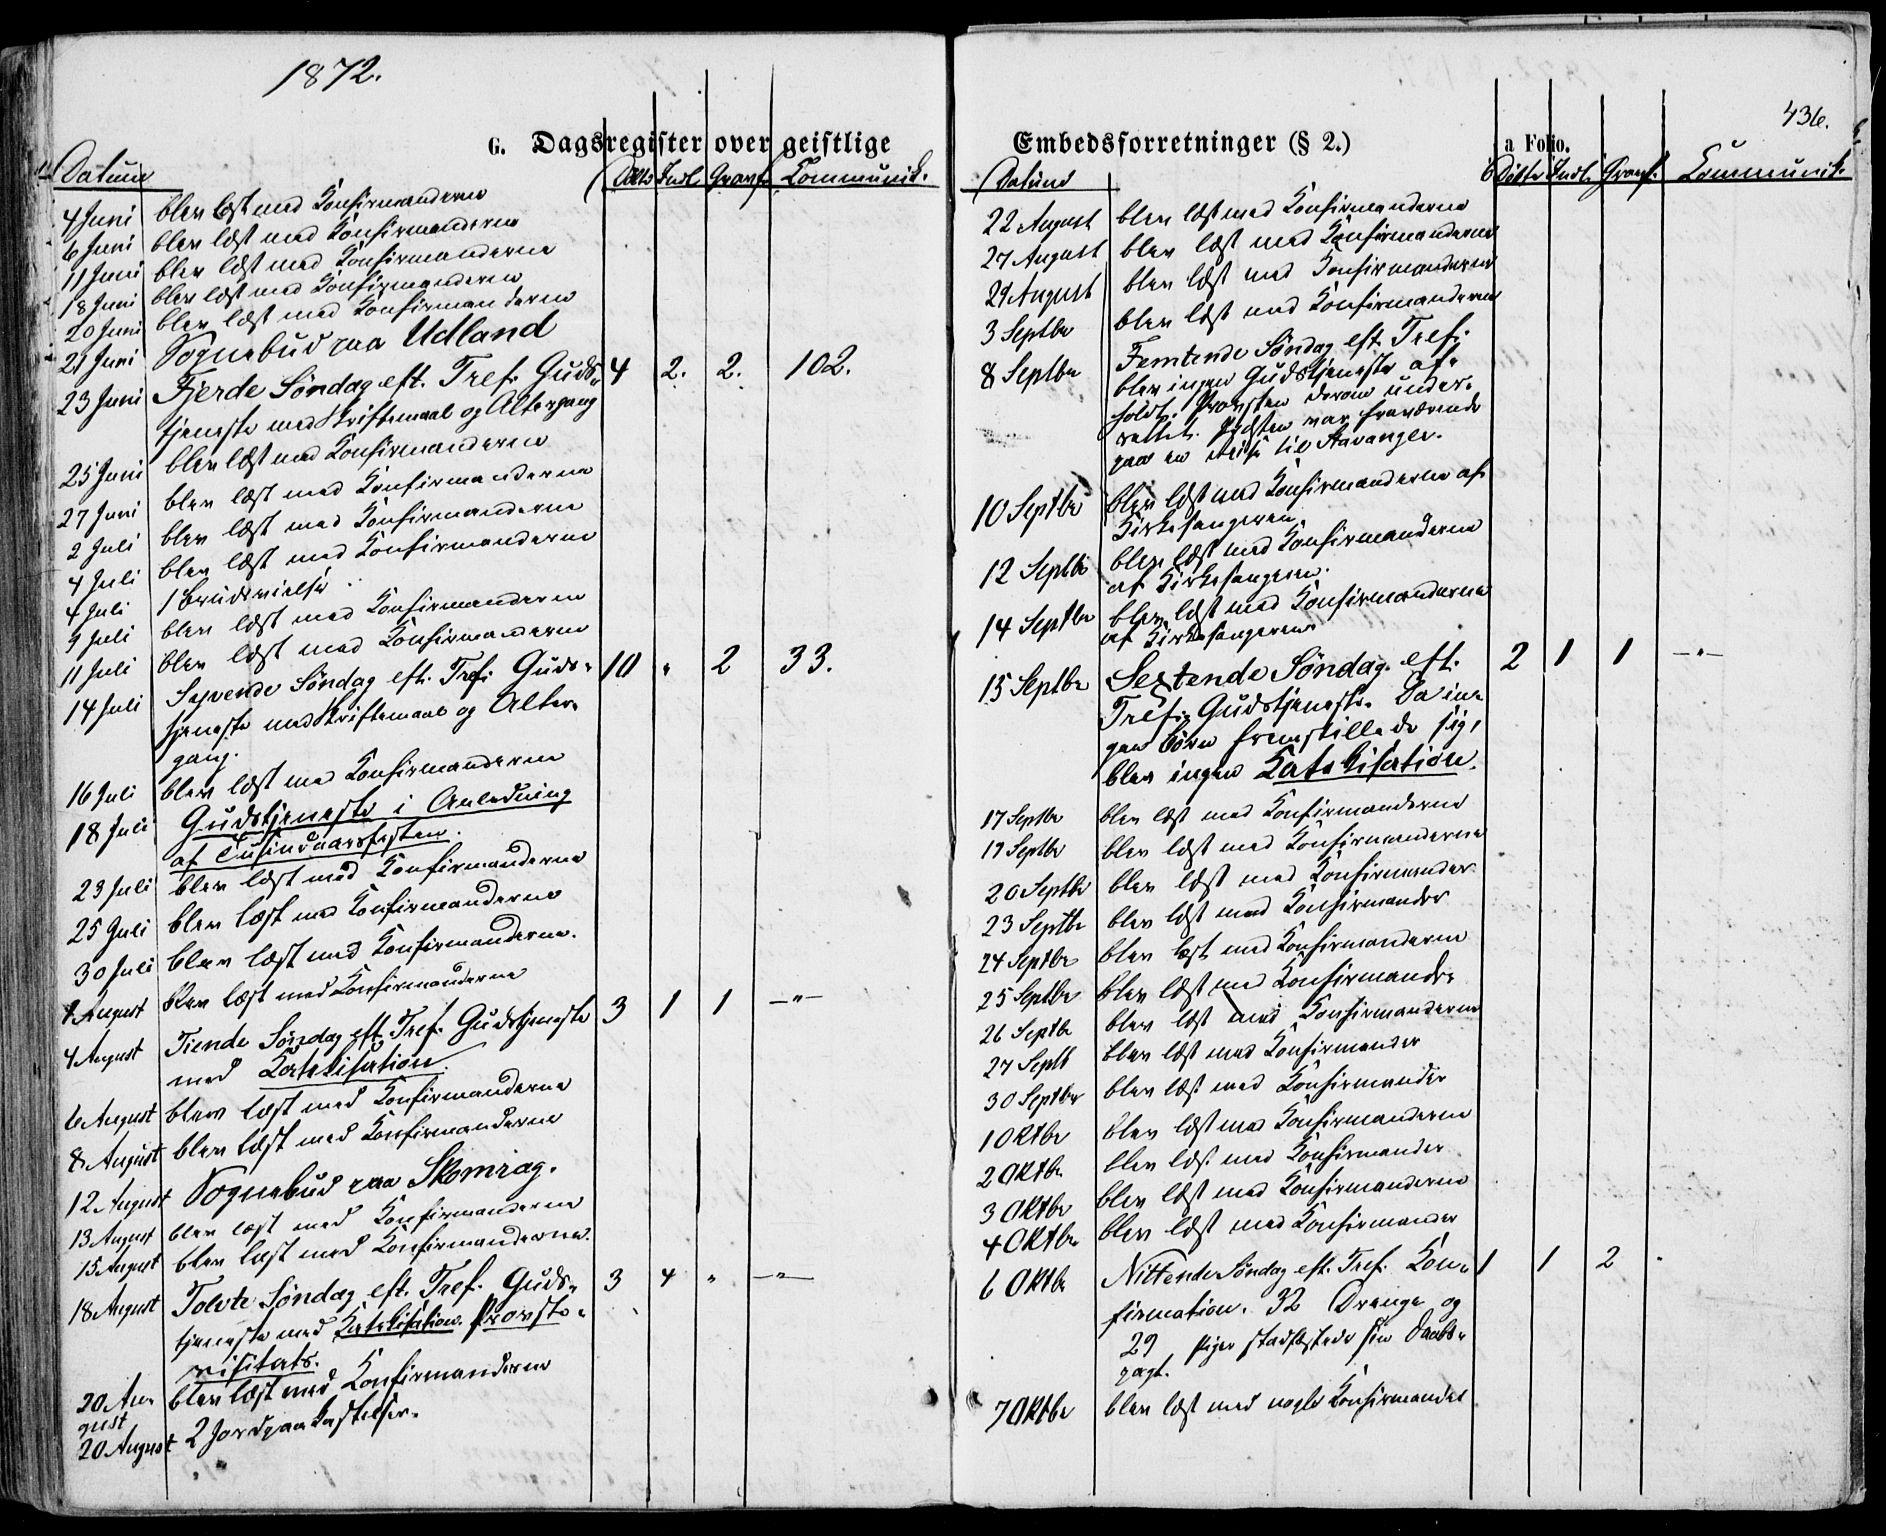 1872.
G. Dagsregister over geistlige
Datum Døbte Indl. Gravf. Kommunik.
4 Juni blev læst med Konfirmanderne
6 Juni blev læst med Konfirmanderne
11 Juni blev læst med Konfirmanderne
18 Juni blev læst med Konfirmanderne
20 Juni blev læst med Konfirmanderne
21 Juni Sognebud paa Udland
23 Juni Fjerde Søndag eft. Tref. Guds- 4 2. 2. 102.
tjeneste med Skriftemaal og Altergang
25 Juni blev læst med Konfirmanderne
27 Juni blev læst med Konfirmanderne
2 Juli blev læst med Konfirmanderne
4 Juli blev læst med Konfirmanderne
4 Juli 1 Brudevielse
9 Juli blev læst med Konfirmanderne
11 Juli blev læst med Konfirmanderne
14 Juli Syvende Søndag eft. Tref. Guds- 10 " 2 33.
tjeneste med Skriftemaal og Alter-
gang.
16 Juli blev læst me Konfirmanderne
18 Juli Gudstjeneste i Anledning
af Tusindaarsfesten.
23 Juli blev læst med Konfirmanderne
25 Juli blev læst med Konfirmanderne
30 Juli blev læst med Konfirmanderne.
1 August blev læst med Konfirmanderne
4 August Tiende Søndag eft. Tref. Gudstjeneste 3 1 1 —"—
med Katekisation.
6 August blev læst med Konfirmanderne
8 August blev læst med Konfirmanderne
12 August Sognebud paa Skomrag.
13 August blev læst med Konfirmanderne
15 August blev læst med Konfirmanderne.
18 August Tolvte Søndag eft. Tref. Guds- 3 4 " —"—
tjeneste med Katekisation. Provste-
visitats.
20 Au- blev læst med Konfirmanderne
gust
20 August 2 Jordpaakastelser.
436.
Embedsforretninger (§ 2.) a Folio.
Datum Døbte Indl. Gravf. Kommunik.
22 August blev læst med Konfirmanderne
27 August blev læst med Konfirmanderne
29 August blev læst med Konfirmanderne
3 Septbr blev læst med Konfirmanderne
8 Septbr Femtende Søndag eft. Tref.
blev ingen Gudstjeneste af-
holdt. Provsten derom under-
rettet. Præsten var fraværende
paa en Reise til Stavanger.
10 Septbr blev læst med Konfirmanderne af
Kirkesangeren.
12 Septbr blev læst med Konfirmanderne
af Kirkesangeren.
14 Septbr blev læst med Konfirmanderne
af Kirkesangeren
15 Septbr Sextende Søndag eft. 2 1 1 —"—
Tref. Gudstjeneste. Da in-
gen Børn fremstillede sig,
blev ingen Katekisation.
17 Septbr blev læst med Konfirmanderne
19 Septbr blev læst med Konfirmanderne
20 Septbr blev læst med Konfirmander
23 Septbr blev læst med Konfirmander
24 Septbr blev læst med Konfirmanderne
25 Septbr blev læst med Konfirmander
26 Septbr blev læst med Konfirmanderne
27 Septb blev læst med Konfirmander
30 Septbr blev læst med Konfirmander
1 Oktbr blev læst med Konfirmanderne
2 Oktbr blev læst med Konfirmander
3 Oktbr blev læst med Konfirmanderne
4 Oktbr blev læst med Konfirmander
6 Oktbr Nittende Søndag eft. Tref. Kon- 1 1 2
firmation. 32 Drenge og
29 Piger stadfæstede sin Daabs-
pagt.
7 Oktbr blev læst med nogle Konfirmander